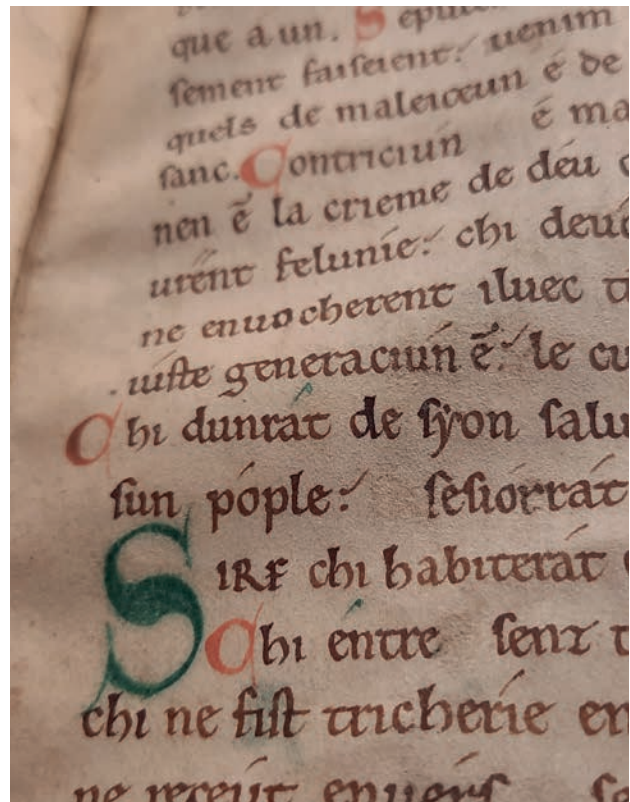 que a un. Sepul
sement faiseient: uenim
quels de maleiceun é de
sanc. Contriciun é ma
nen ẽ la crieme de déu
urént felunie: chi deu
ne enuocherent iluec
iuste generaciún ẽ: le cu
Chi dunrát de sẏon salu
sun póple: sesiorrát
SIRE chi habiterát
Chi éntre senz
chi ne fist tricheríe en
ne receút enuérs